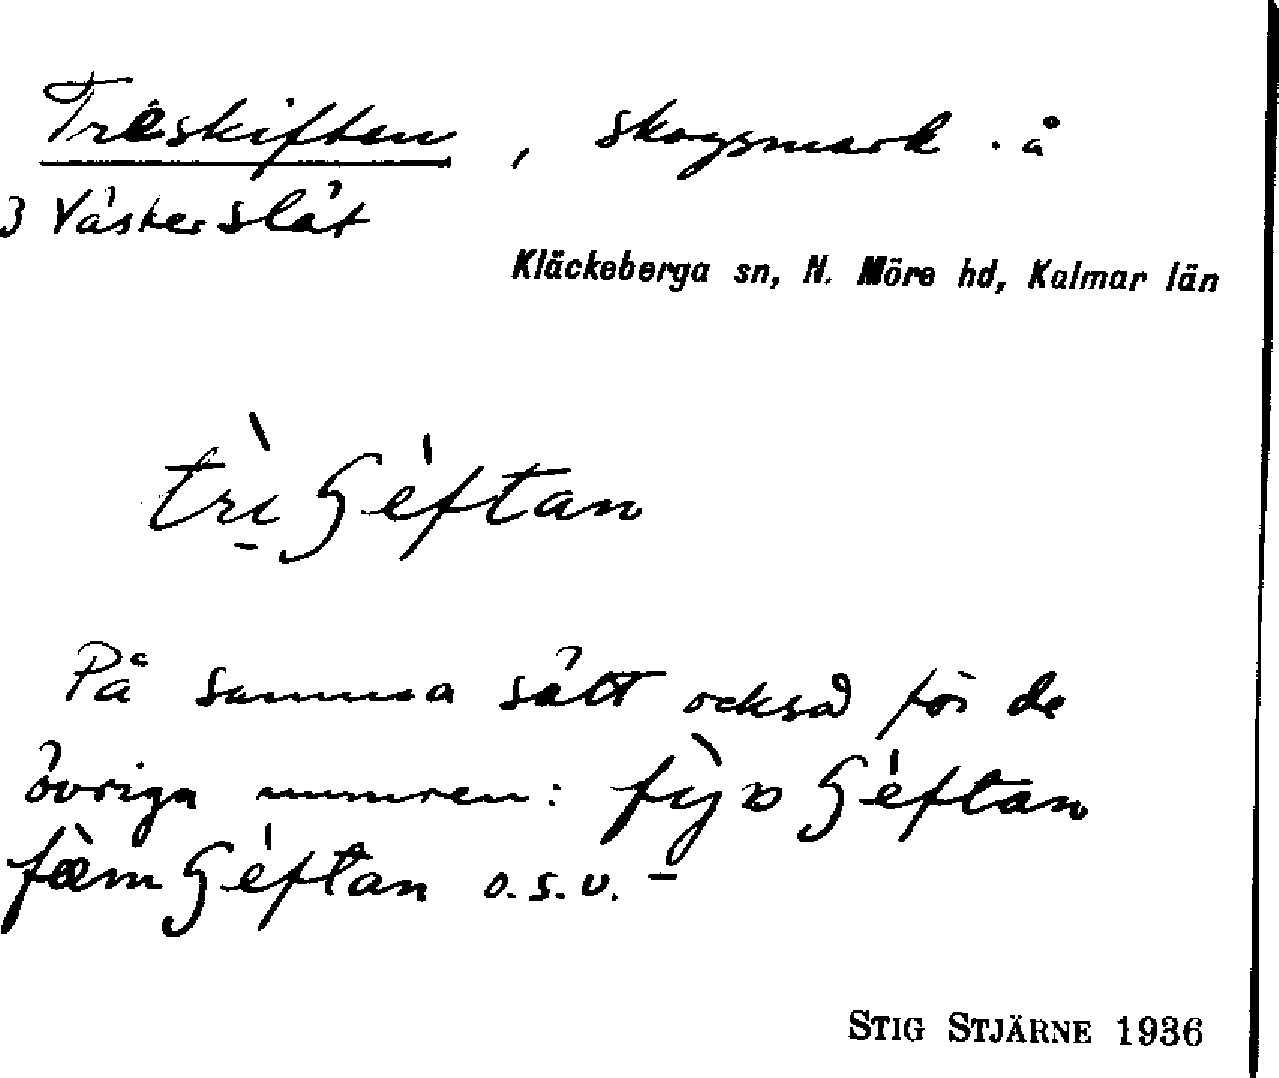 Treskiften, skogsmark. å
3 Västerslät
Kläckeberga sn, N. Möre hd, Kalmar län
trì ʃéftan
På samma sätt också för de
övriga numren: fỳɷ ʃéftan
fæ̀m ʃéftan o.s.v. –
STIG STJÄRNE 1936